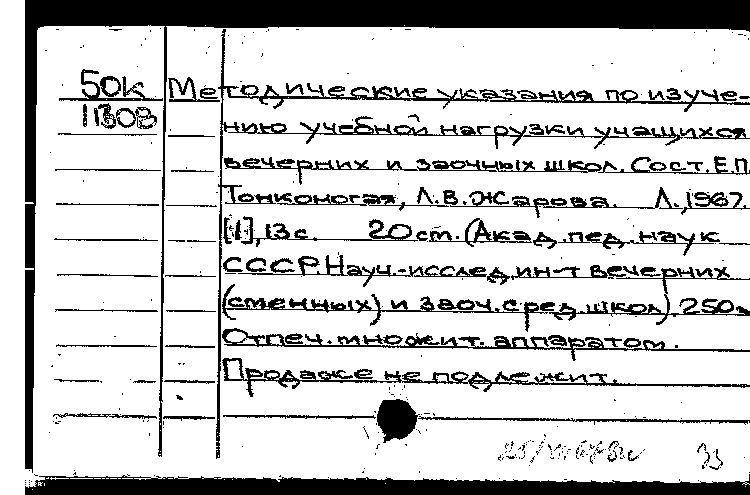 50к Методические указания по изуче-
11308 нию учебной нагрузки учащихся
вечерних и заочных школ. Сост. Е.П.
Тонконогая, Л.В. Жарова. Л., 1967.
[1], 13 с. 20 cm. (Акад. пед. наук
СССР. Науч.-исслед. ин-т вечерних
(сменных) и заоч. сред. школ). 250
Отпеч. множит. аппаратом.
Продаже не подлежит.
33